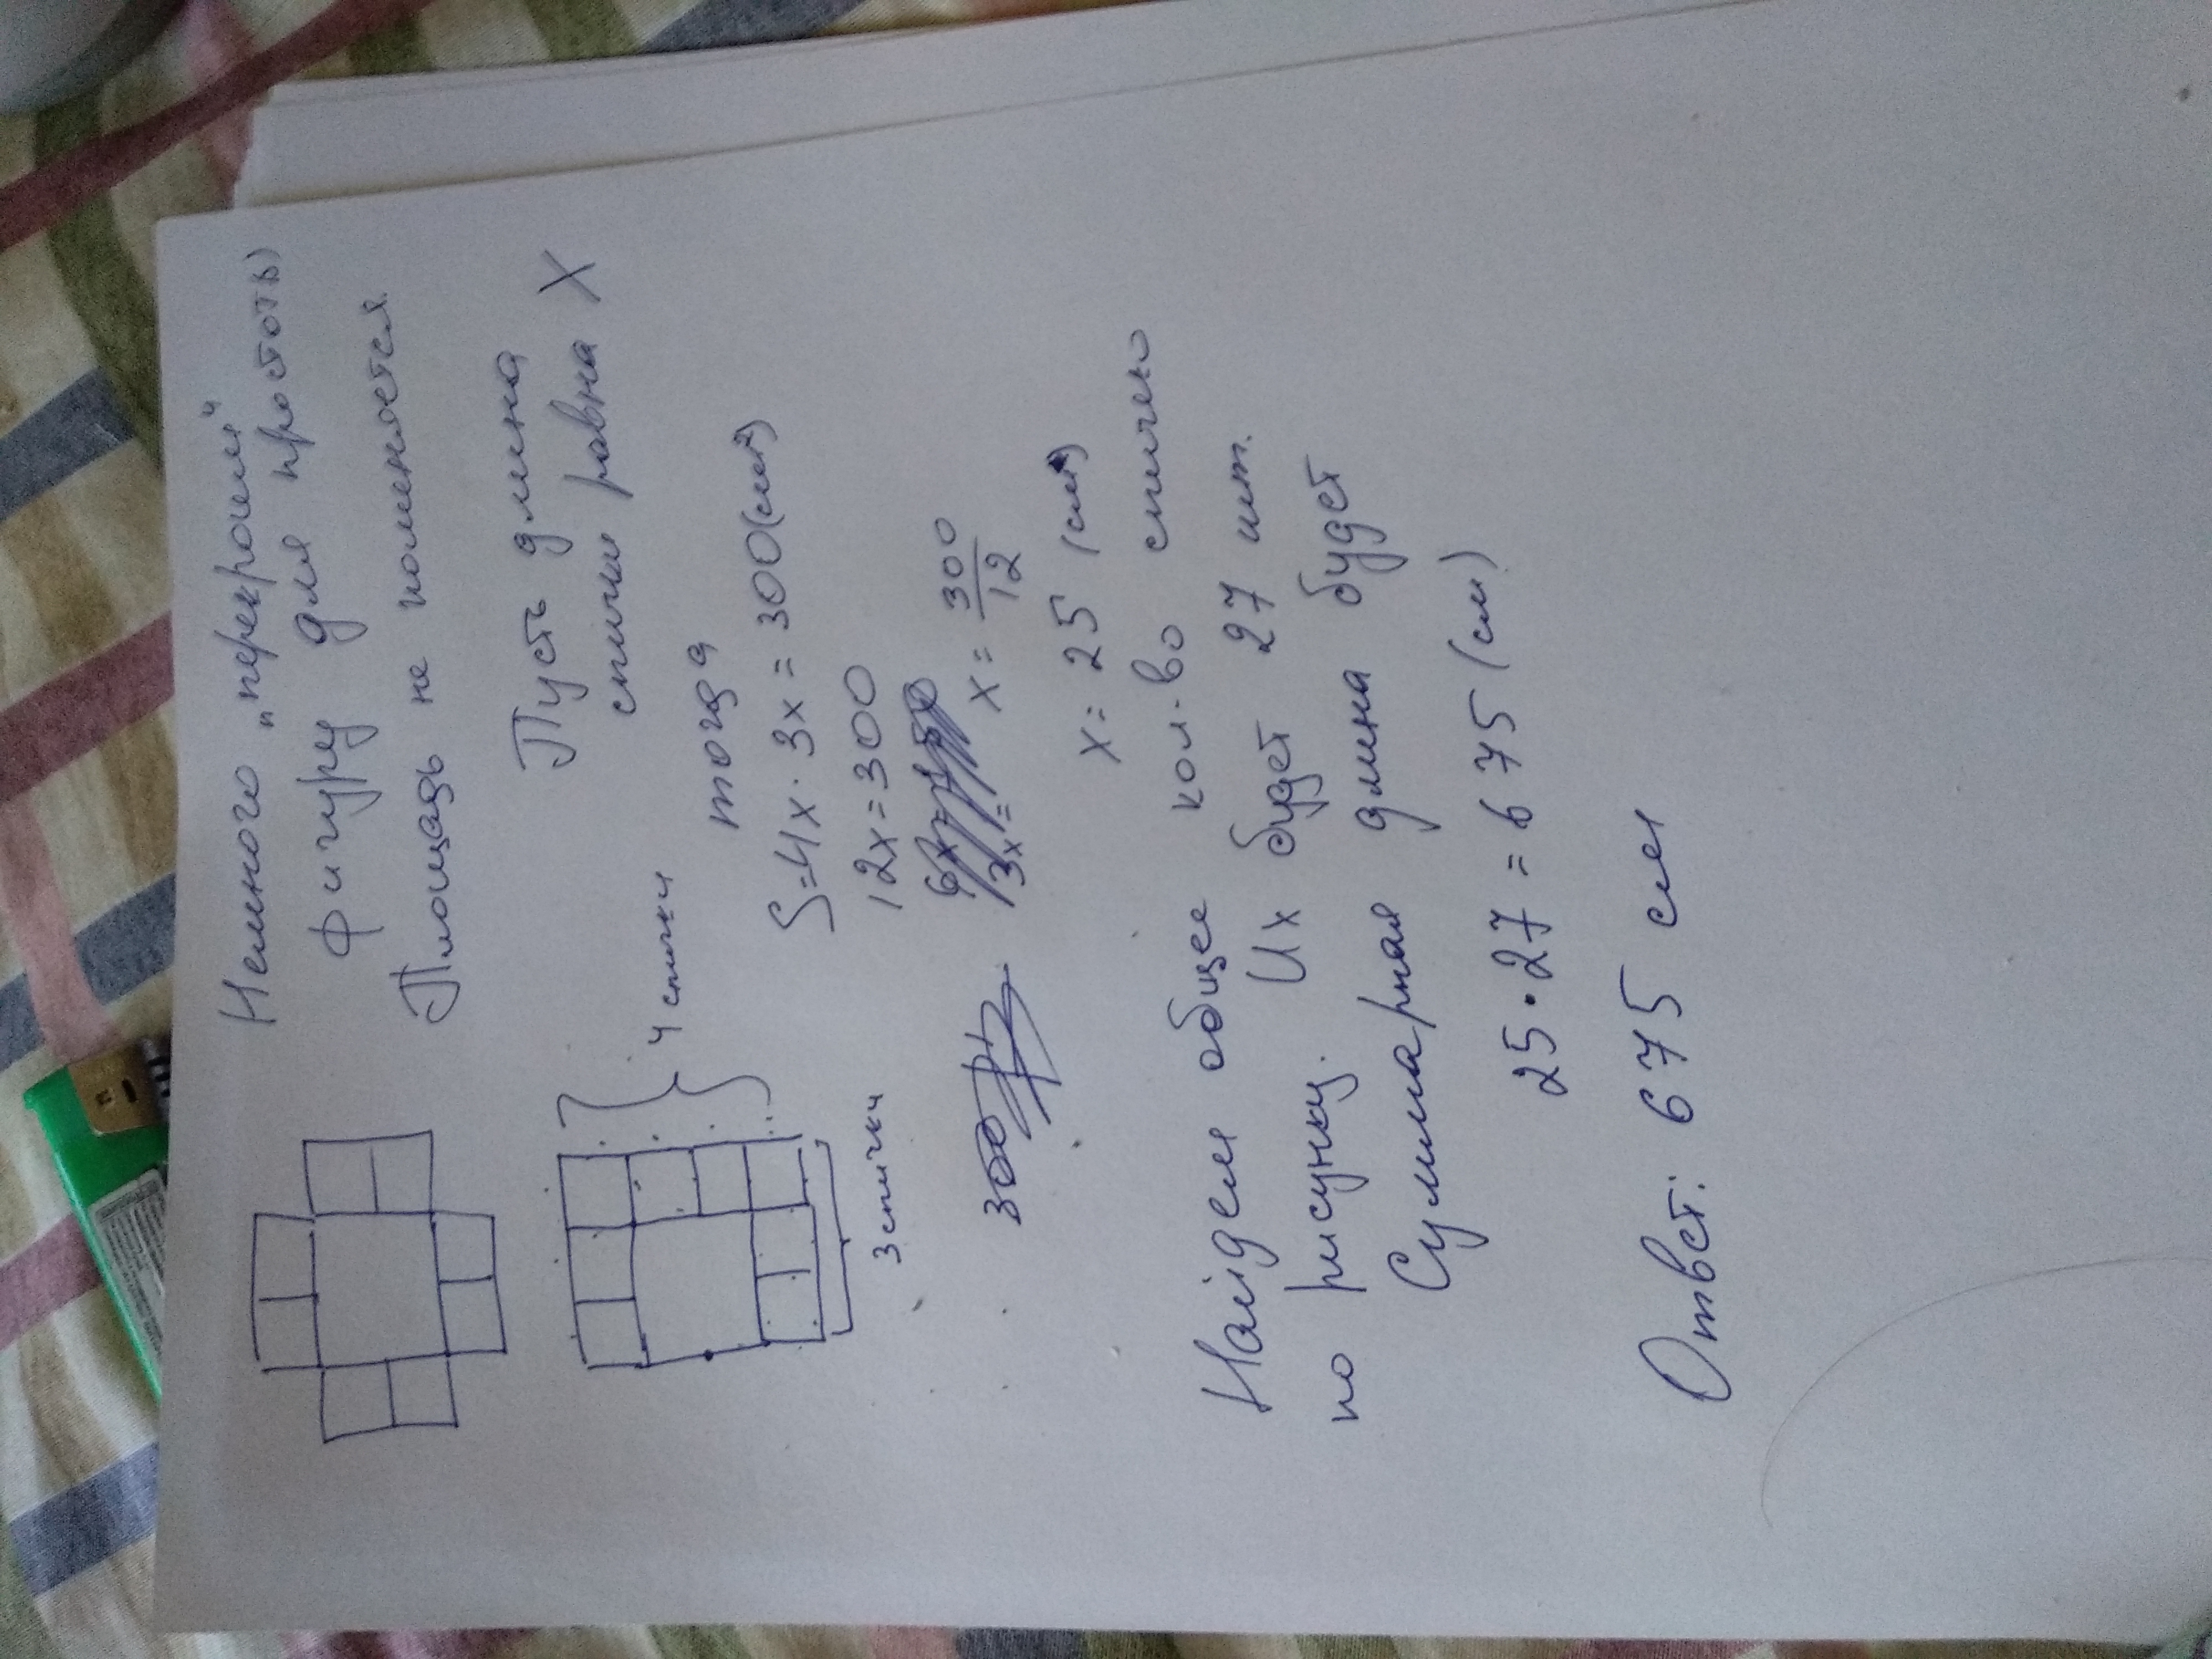 Немного "перекроим"
фигуру для простоты)
Площадь не поменяется.
Пусть длина
спички равна X
4 спички
3 спички
тогда
S=4x·3x=300(см²)
12x=300
x=300/12
x=25 (см)
300
Найдем общее кол-во спичек
по рисунку. Их будет 27 шт.
Суммарная длина будет
25·27=675(см)
Ответ: 675 см